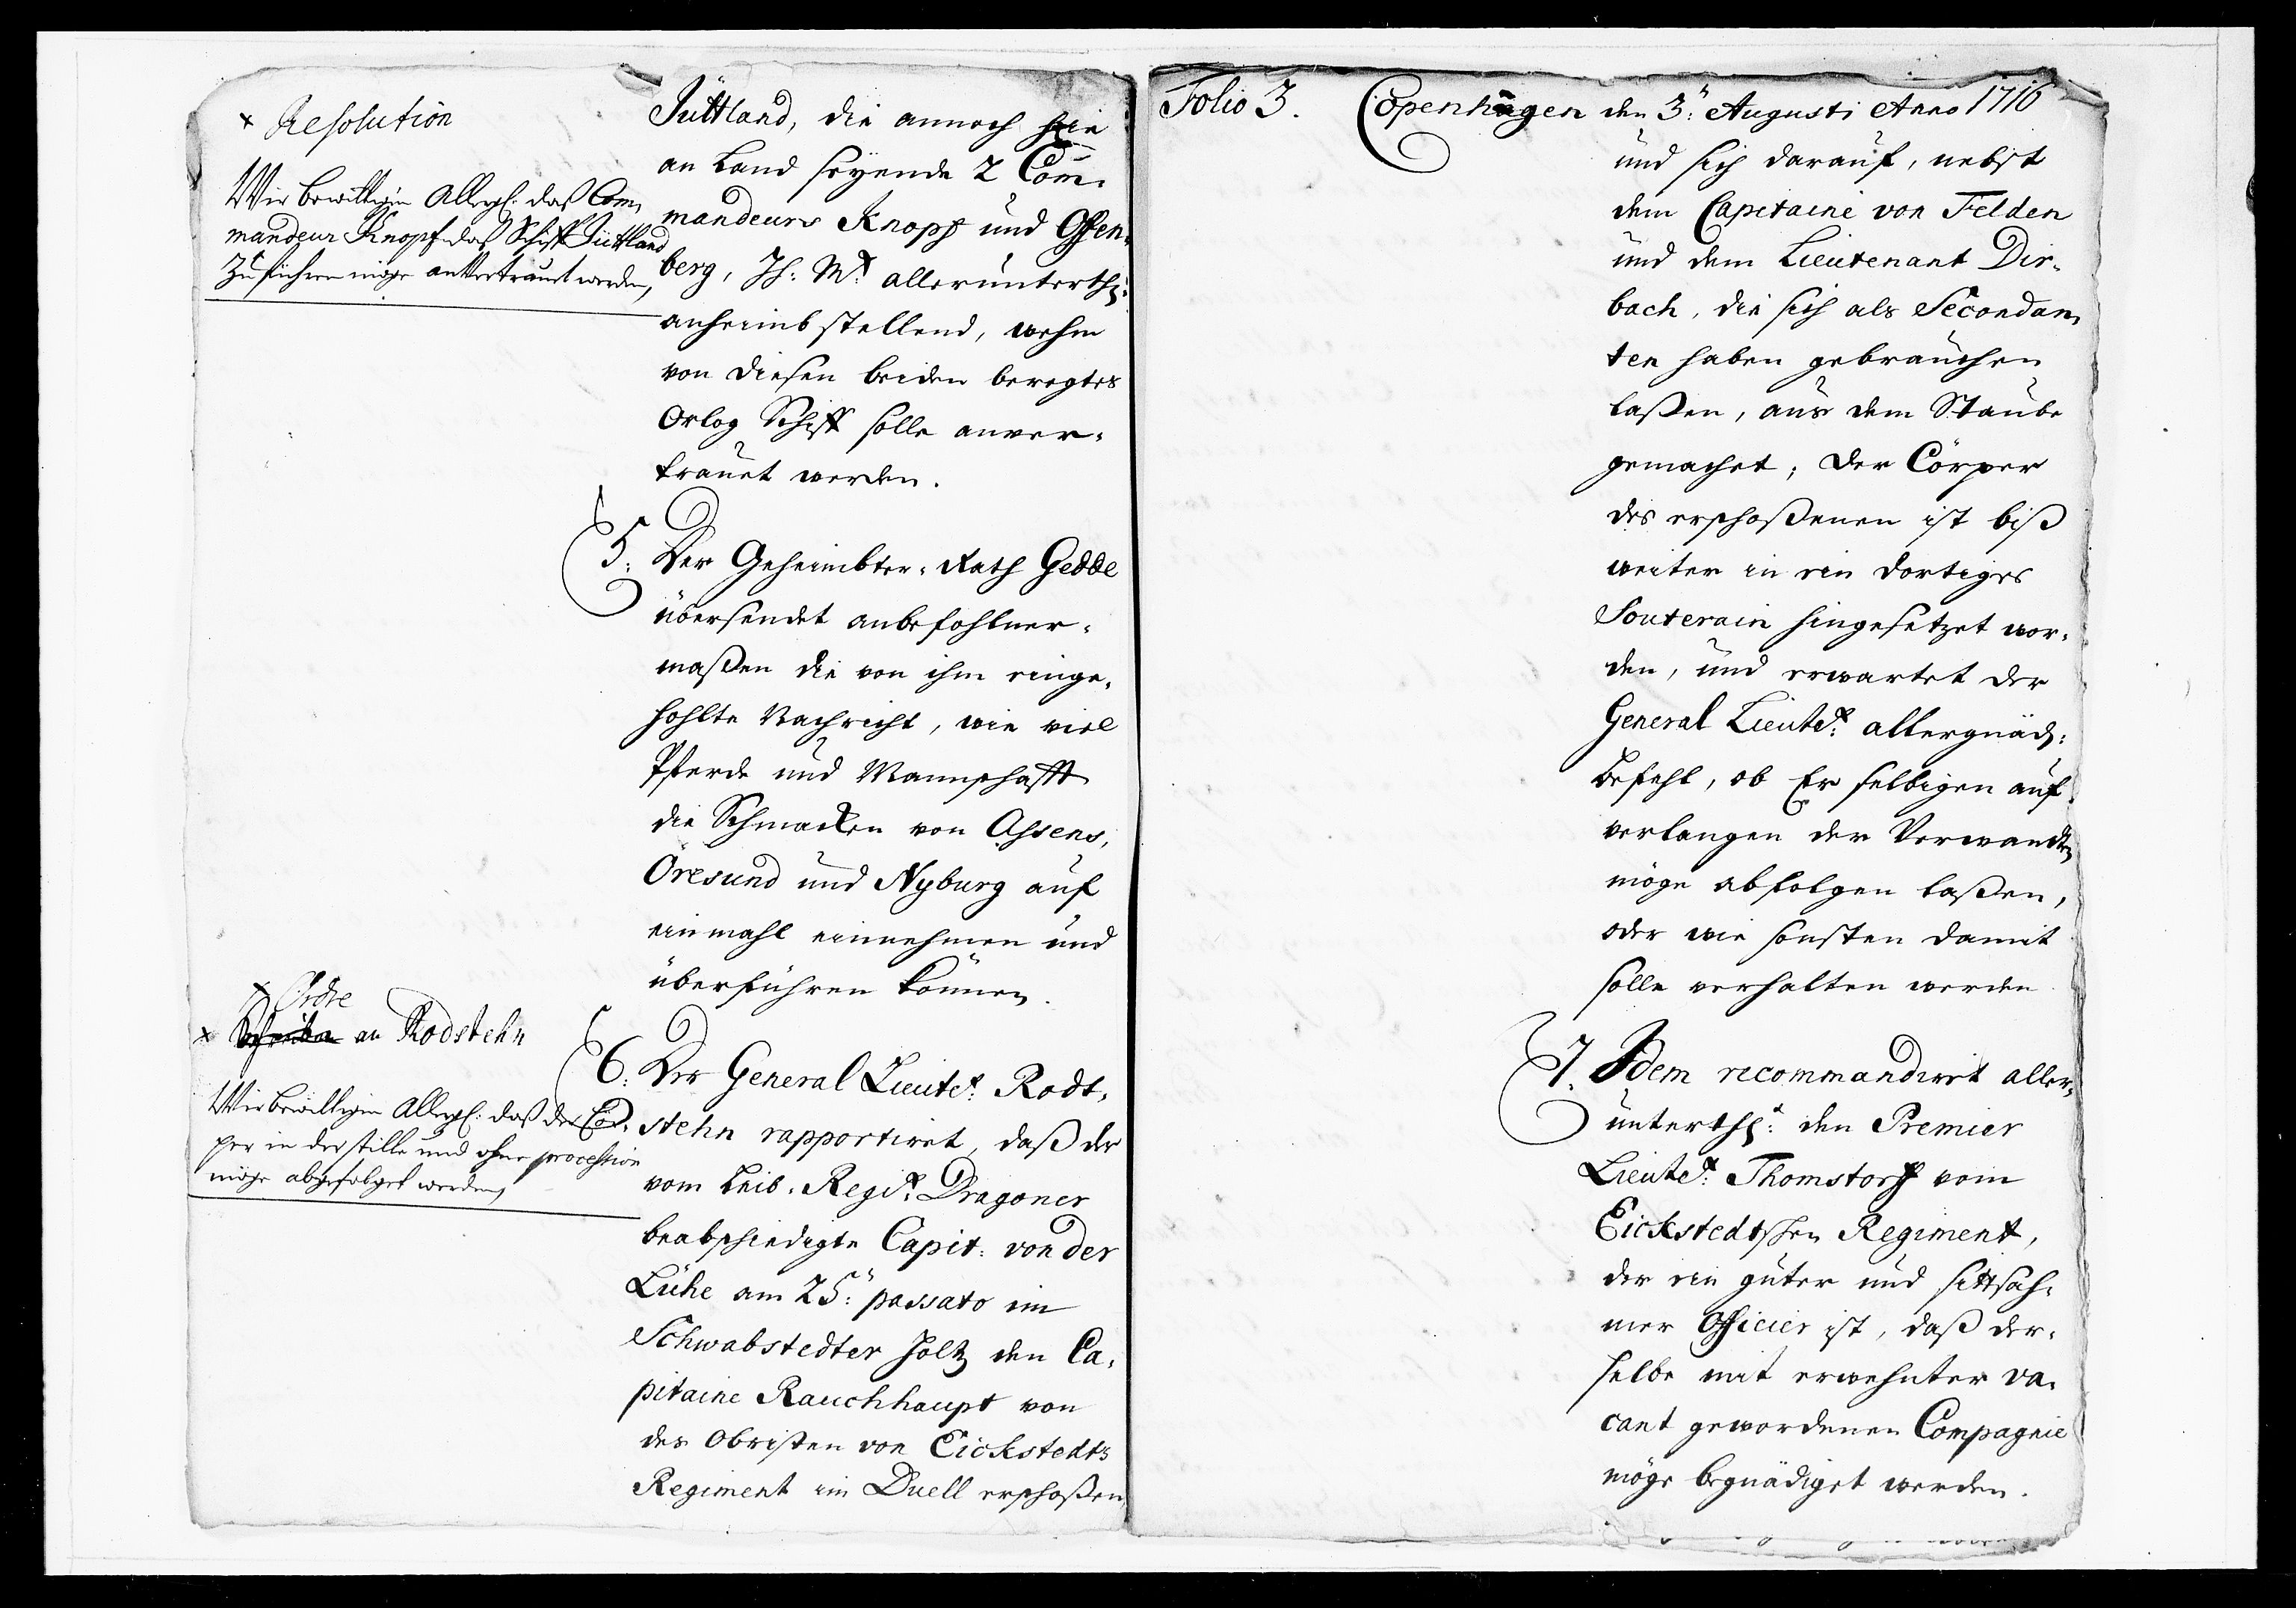 × Resolution
Wir bewilligen Allergl: daß Com,
mandeur Knopf daß Schiff Jüttland
zu führen möge anvertrauet werden,
Jüttland, die annoch hie
an Land seyende 2 Com¯
mandeurs Knopf und Ofen,
berg, Ih: Mt: allerunterthg:
anheimb stellend, wehm
von diesen beiden beregtes
Orlog Schiff solle anver,
trauet werden.
5. Der Geheimbter, Rath Gedde
übersendet anbefohlner,
maßen die von ihm einge,
hohlte Nachricht, wie viel
Pferde und Mannschafft
die Schmacken von Assens,
Öresund und Nyburg auf
einmahl einnehmen und
überführen können.
× Ordre
× an Rodstehn
Wir bewilligen Allergl: daß der Cör,
per in der stille und ohne procession
möge abgefolget werden,
6. Der General Lieutet: Rodt,
stehn rapportiret, daß der
vom Leib, Regit: Dragoner
beabschiedigte Capit: von der
Lühe am 25: passato im
Schwabstedter Holtz den Ca,
pitaine Rauchhaupt von
des Obristen von Eickstedts
Regiment im Duell erschoßen,
Folio 3. Copenhagen den 3: Augusti Anno 1716
und sich darauf, nebst
dem Capitaine von Felden
und dem Lieutenant Dir,
bach, die sich als Secondan,
ten haben gebrauchen
laßen, aus dem Staube
gemachet; der Cörper
des erschoßenen ist biß
weiter in ein dortiges
Souterain hingesetzet wor,
den, und erwartet der
General Lieutet: allergnäd:
Befehl, ob Er selbigen auf
verlangen der Verwandten
möge abfolgen laßen,
oder wie sonsten damit
solle verhalten werden
7. Idem recommandiret aller,
unterthgt: den Premier
Lieutet: Thomstorff vom
Eickstedtschen Regiment,
der ein guter und sittsah,
mer Officier ist, daß der,
selbe mit erwehnter va,
cant gewordenen Compagnie
möge begnädiget werden.